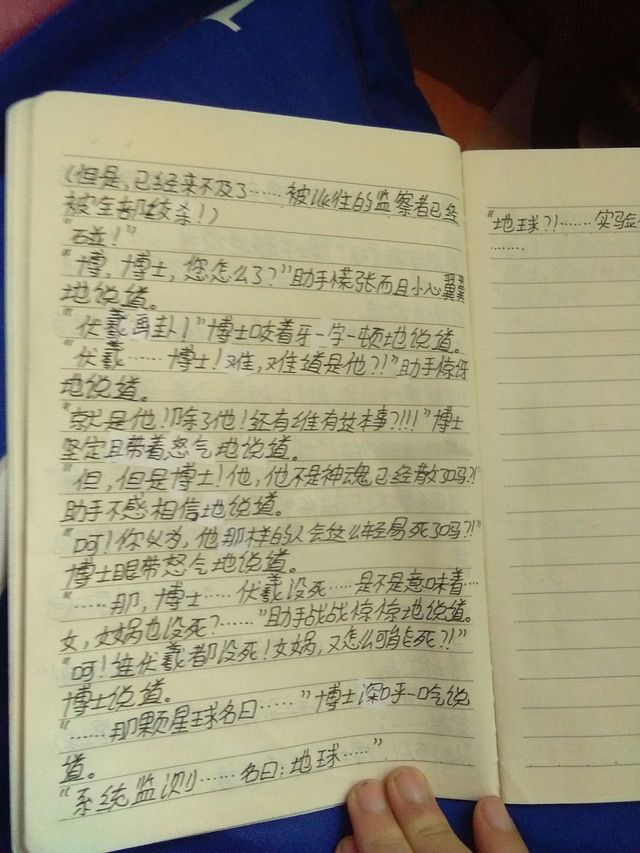 (但是,已经来不及了……被ilk住的监察者已经
被全部绞杀!)
"碰!"
"博,博士,您怎么了?"助手慌张而且小心翼翼
地说道。
"伏羲再卦!"博士咬着牙一字一顿地说道。
"伏羲……博士!难,难道是他?!"助手惊讶
地说道。
"就是他!除了他!还有谁有这本事?!!!"博士
坚定且带着怒气地说道。
"但,但是博士!他,他不是神魂已经散了吗?!
助手不感相信地说道。
"呵!你以为,他那样的人会这么轻易死了吗?!"
博士眼带怒气地说道。
"……那,博士……伏羲没死……是不是意味着…
女,女娲也没死?……"助手战战惊惊地说道。
"呵!连伏羲都没死!女娲,又怎么可能死?!"
博士说道。
"……那颗星球名曰……"博士深呼一吃说
道。
"系统监测……名曰:地球……"
"地球?!……实验
……